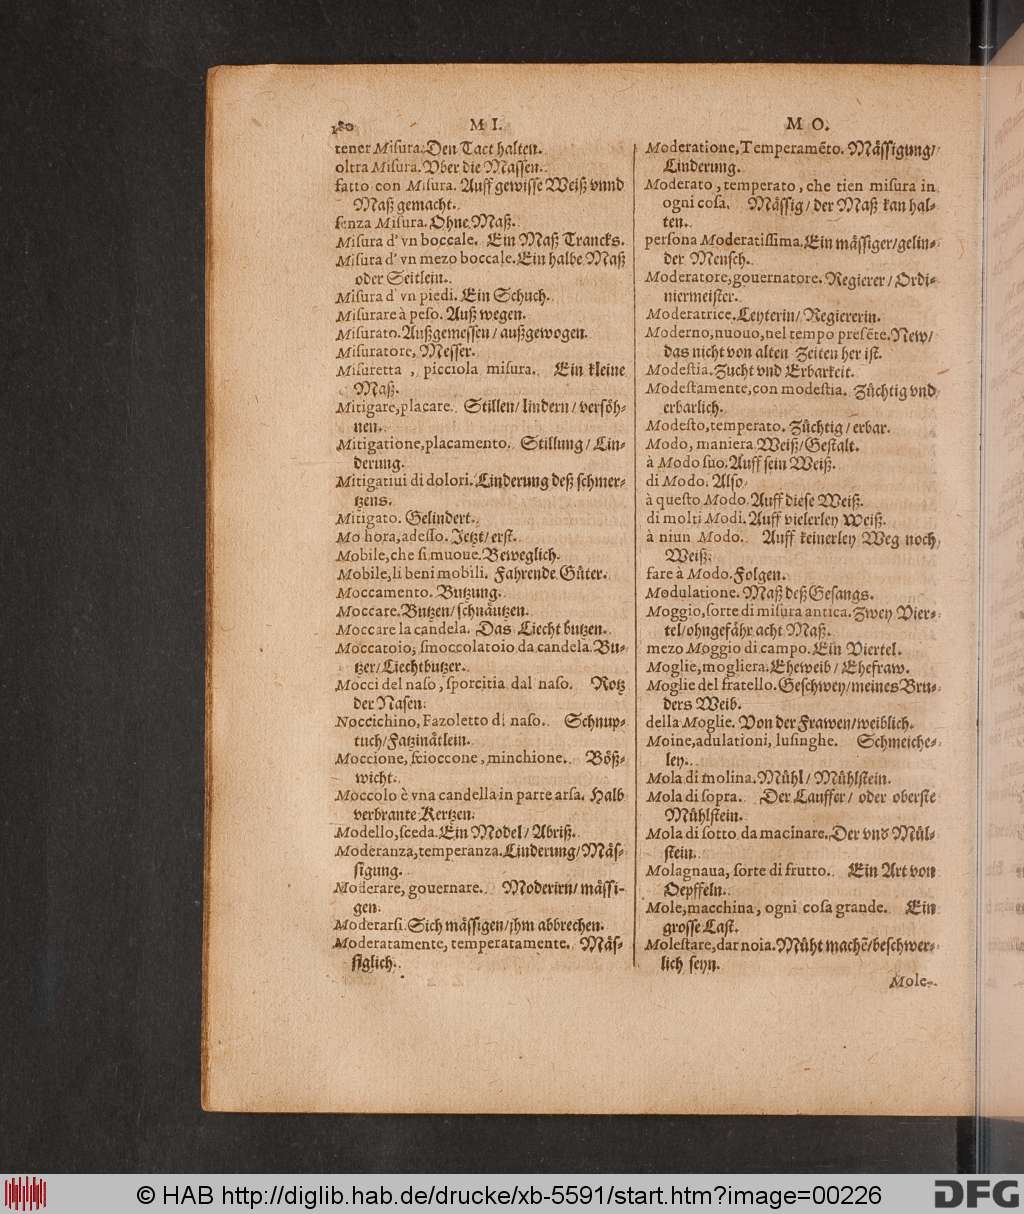 180
M I.
M O.
tener Miſura. Den Tact halten.
oltra Miſura. Vber die Maſſen.
fatto con Miſura. Auff gewiſſe Weiß vnnd
Maß gemacht.
ſenza Miſura. Ohne Maß.
Miſura d' vn boccale. Ein Maß Trancks.
Miſura d' vn mezo boccale. Ein halbe Maß
oder Seitlein.
Miſura d' vn piedi. Ein Schuch.
Miſurare à peſo. Auß wegen.
Miſurato. Außgemeſſen / außgewogen.
Miſuratore, Meſſer.
Miſuretta , picciola miſura. Ein kleine
Maß.
Mitigare, placare. Stillen / lindern / verſöh-
nen.
Mitigatione, placamento. Stillung / Lin-
derung.
Mitigatiui di dolori. Linderung deß ſchmer-
tzens.
Mitigato. Gelindert.
Mo hora, adeſſo. Jetzt / erſt.
Mobile, che ſi muoue. Beweglich.
Mobile, li beni mobili. Fahrende Güter.
Moccamento. Butzung.
Moccare. Butzen / ſchnäutzen.
Moccare la candela. Das Liecht butzen.
Moccatoio, ſmoccolatoio da candela. Bu-
tzer / Liechtbutzer.
Mocci del naſo, ſporcitia dal naſo. Rotz
der Naſen.
Noccichino, Fazoletto di naſo. Schnup-
tuch / Fatzinätlein.
Moccione, ſcioccone, minchione. Böß-
wicht.
Moccolo è vna candella in parte arſa. Halb
verbrante Kertzen.
Modello, ſceda. Ein Model / Abriß.
Moderanza, temperanza. Linderung / Mäſ-
ſigung.
Moderare, gouernare. Moderirn / mäſſi-
gen.
Moderarſi. Sich mäſſigen / jhm abbrechen.
Moderatamente, temperatamente. Mäſ-
ſiglich.
Moderatione, Temperamẽto. Mäſſigung /
Linderung.
Moderato, temperato, che tien miſura in
ogni coſa. Mäſſig / der Maß kan hal-
ten.
perſona Moderatiſſima. Ein mäſſiger / gelin-
der Menſch.
Moderatore, gouernatore. Regierer / Ordi-
niermeiſter.
Moderatrice. Leyterin / Regiererin.
Moderno, nuouo, nel tempo preſẽte. New /
das nicht von alten Zeiten her iſt.
Modeſtia. Zucht vnd Erbarkeit.
Modeſtamente, con modeſtia. Züchtig vnd
erbarlich.
Modeſto, temperato. Züchtig / erbar.
Modo, maniera. Weiß / Geſtalt.
à Modo ſuo. Auff ſein Weiß.
di Modo. Alſo.
à queſto Modo. Auff dieſe Weiß.
di molti Modi. Auff vielerley Weiß.
à niun Modo. Auff keinerley Weg noch
Weiß.
fare à Modo. Folgen.
Modulatione. Maß deß Geſangs.
Moggio, ſorte di miſura antica. Zwey Vier-
tel / ohngefähr acht Maß.
mezo Moggio di campo. Ein Viertel.
Moglie, mogliera. Eheweib / Ehefraw.
Moglie del fratello. Geſchwey / meines Bru-
ders Weib.
della Moglie. Von der Frawen / weiblich.
Moine, adulationi, luſinghe. Schmeiche-
ley.
Mola di molina. Mühl / Mühlſtein.
Mola di ſopra. Der Lauffer / oder oberſte
Mühlſtein.
Mola di ſotto da macinare. Der vnd Mül-
ſtein.
Molagnaua, ſorte di frutto. Ein Art von
Oepffeln.
Mole, macchina, ogni coſa grande. Ein
groſſe Laſt.
Moleſtare, dar noia. Müht machẽ / beſchwer-
lich ſeyn.
Mole-
© HAB http://diglib.hab.de/drucke/xb-5591/start.htm?image=00226
DFG